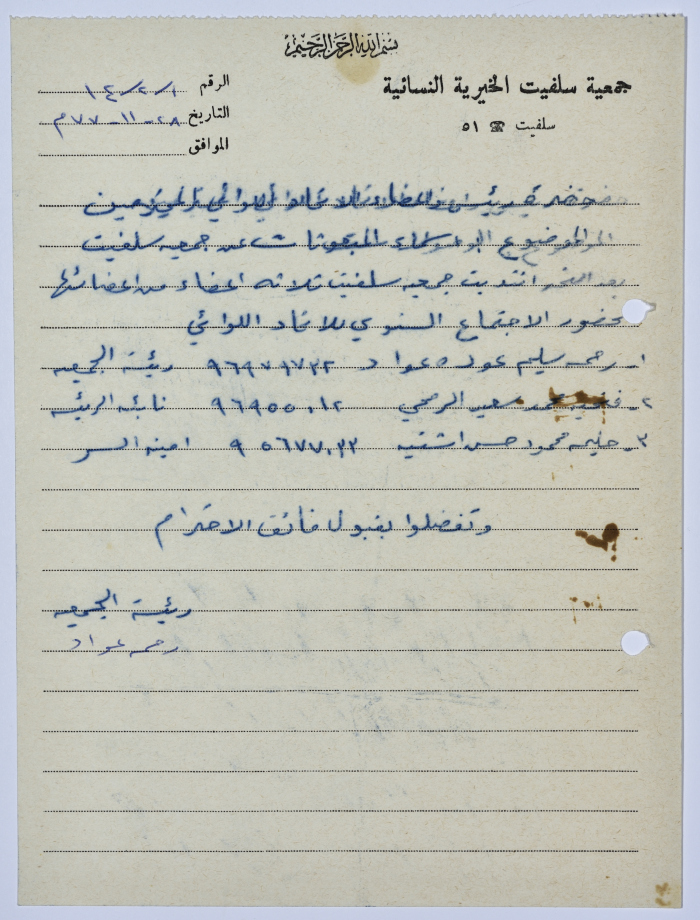 بسم الله الرحمن الرحيم
جمعية سلفيت الخيرية النسائية
سلفيت ☎ ٥١
الرقم ١٤/٢/١
التاريخ ٢٨-١١-٧٧م
الموافق
حضرة رئيس واعضاء الاتحاد اللوائي المحترمين
الموضوع اسماء المبعوثات عن جمعية سلفيت
بعد انتدبت جمعيه سلفيت ثلاثه اعضاء من اعضائها
لحضور الاجتماع السنوي للاتحاد اللوائي
١. رحمه سليم عوده عواد ٩٦٩٧٩٧٢٢ رئيسة الجمعيه
٢. محمد سعيد ٩٦٩٥٥٠١٢ نائبه الرئيسه
٣. حليمه محمود حسن اشتيه ٩٥٦٧٧٠٣٣ امينه السر
وتفضلوا بقبول فائق الاحترام
رئيسة الجمعيه
رحمه عواد